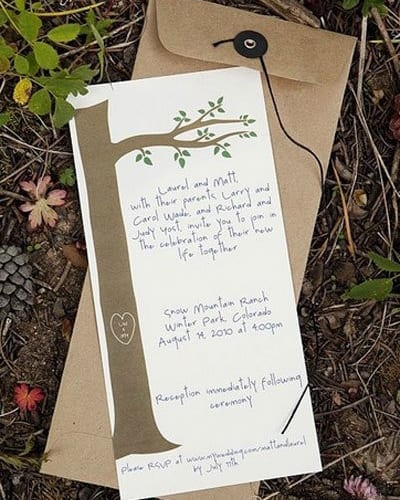 Laurel and Matt,
with their parents, Larry and
Carol Wade, and Richard and
Judy Yost, invite you to join in
the celebration of their new
life together
Snow Mountain Ranch
Winter Park, Colorado
August 14, 2010 at 4:00pm
Reception immediately following
ceremony
please RSVP at www.mywedding.com/mattandlaurel
by July 11th